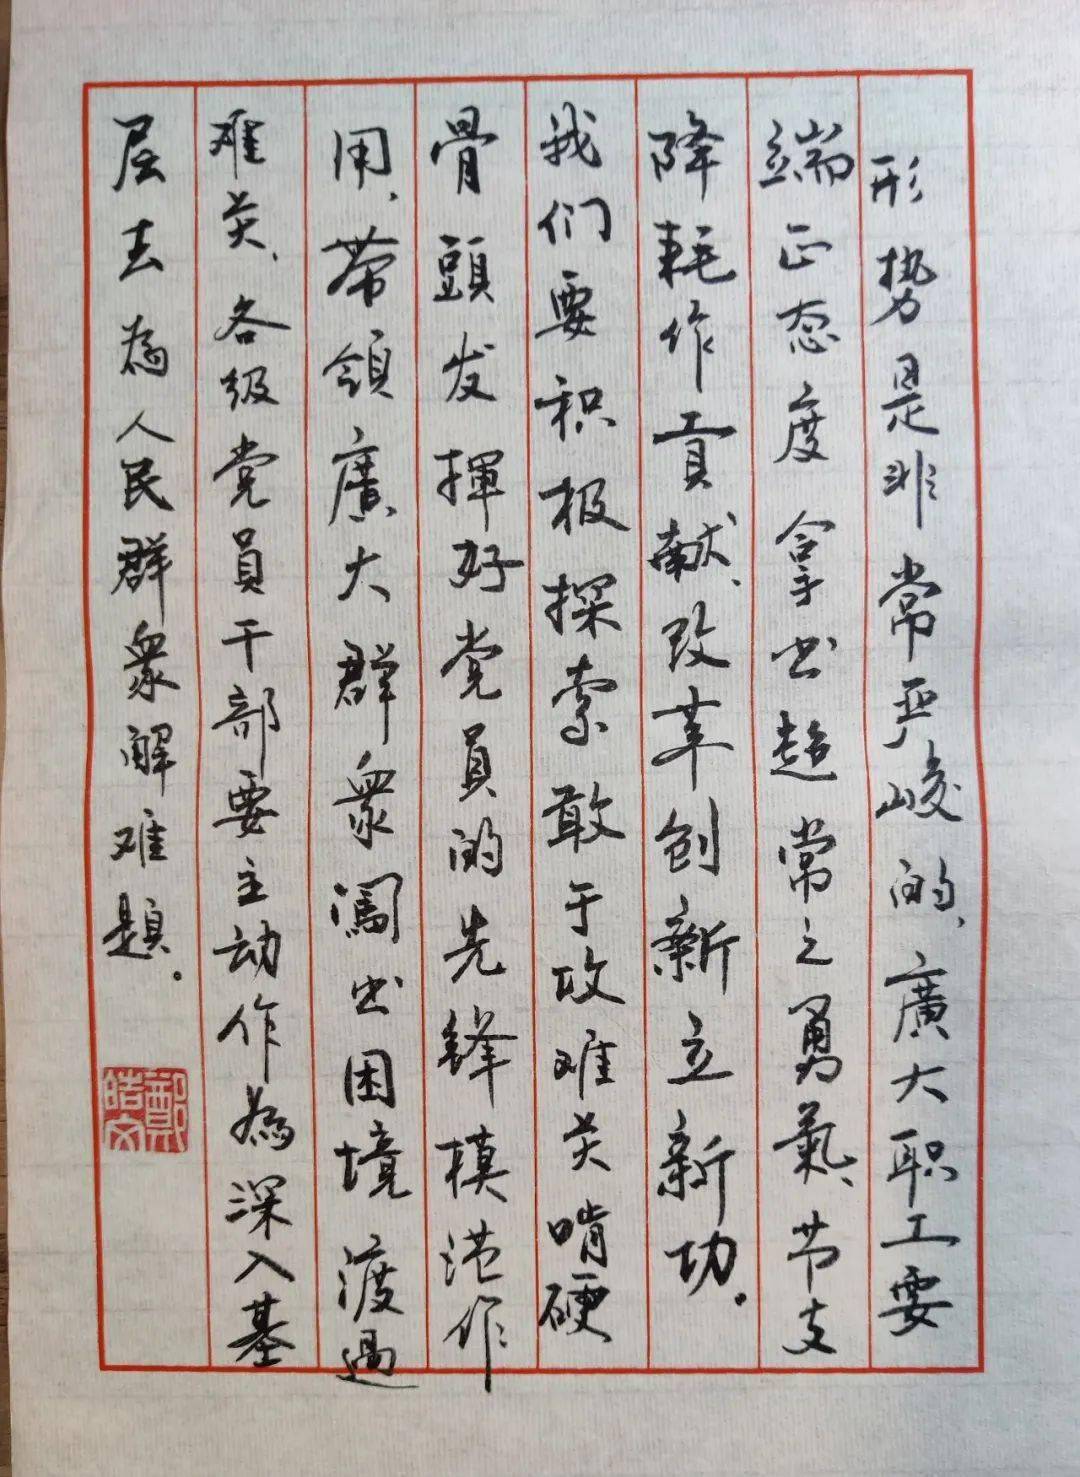 形势是非常严峻的、廣大职工要
端正态度拿出超常之勇氣、节支
降耗作贡献、改革创新立新功。
我们要积极探索敢于攻难关啃硬
骨頭发揮好党員的先鋒模范作
用、带领廣大群衆闯出困境渡過
难关、各级党員干部要主动作為深入基
层去為人民群衆解难题。
鄭皓文